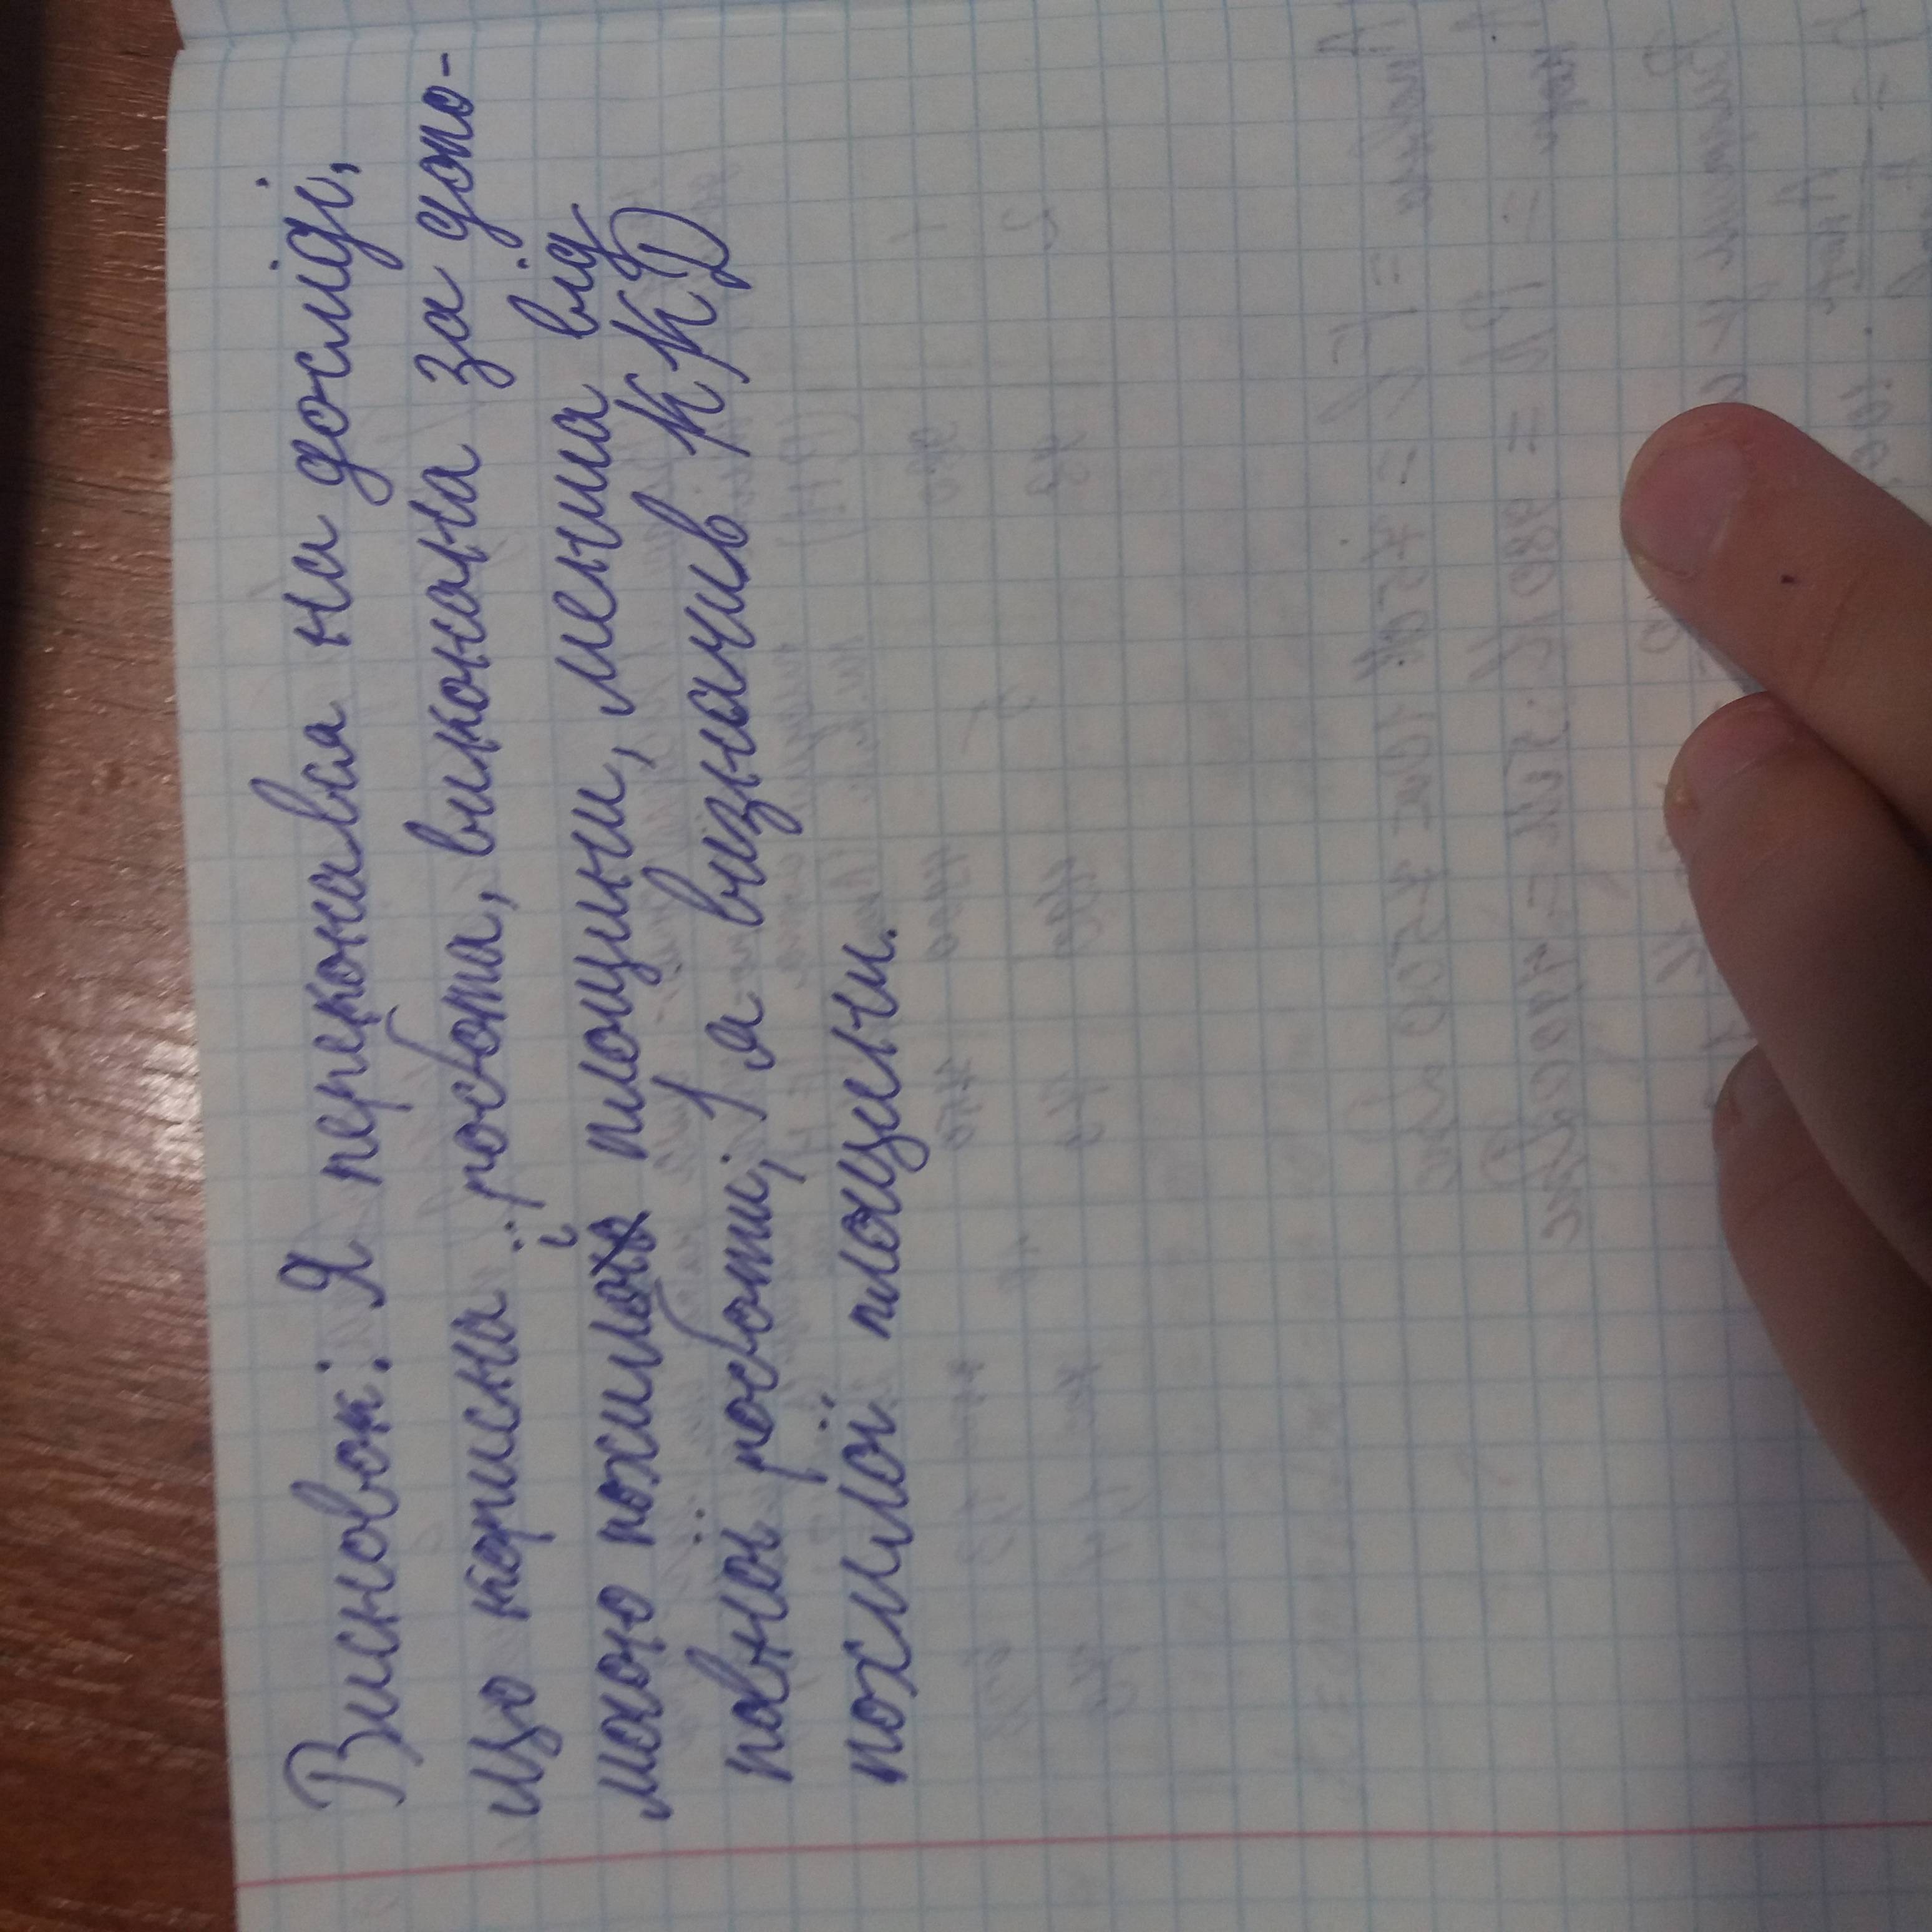 Висновок: Я переконався на досліді,
що корисна робота, виконана за допо-
могою похилої площини, менша від
повної роботи; І я визначив ККД
похилої площини.